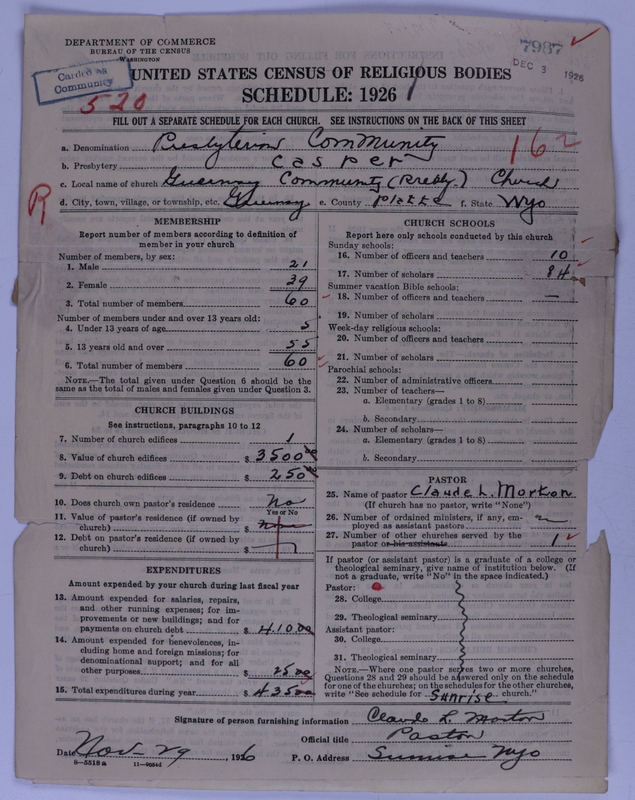 DEPARTMENT OF COMMERCE
BUREAU OF THE CENSUS
WASHINGTON
7987
DEC 3 1926
Carded as
Community
UNITED STATES CENSUS OF RELIGIOUS BODIES
520
SCHEDULE: 1926
FILL OUT A SEPARATE SCHEDULE FOR EACH CHURCH. SEE INSTRUCTIONS ON THE BACK OF THIS SHEET
a. Denomination Presbyterian Community
162
b. Presbytery Casper
c. Local name of church Guernsey Community (Presby.) Church
R
d. City, town, village, or township, etc. Guernsey e. County Platte f. State Wyo
MEMBERSHIP
Report number of members according to definition of
member in your church
Number of members, by sex:
1. Male 21
2. Female 39
3. Total number of members 60
Number of members under and over 13 years old:
4. Under 13 years of age 5
5. 13 years old and over 55
6. Total number of members 60
NOTE.—The total given under Question 6 should be the
same as the total of males and females given under Question 3.
CHURCH BUILDINGS
See instructions, paragraphs 10 to 12
7. Number of church edifices 1
8. Value of church edifices $ 3500 00
9. Debt on church edifices $ 250 00
10. Does church own pastor's residence No
Yes or No
11. Value of pastor's residence (if owned by
church) $ none
12. Debt on pastor's residence (if owned by
church) $
EXPENDITURES
Amount expended by your church during last fiscal year
13. Amount expended for salaries, repairs,
and other running expenses; for im-
provements or new buildings; and for
payments on church debt $ 410.00
14. Amount expended for benevolences, in-
cluding home and foreign missions; for
denominational support; and for all
other purposes $ 25.00
15. Total expenditures during year $ 435.00
CHURCH SCHOOLS
Report here only schools conducted by this church
Sunday schools:
16. Number of officers and teachers 10
17. Number of scholars 84
Summer vacation Bible schools:
18. Number of officers and teachers —
19. Number of scholars
Week-day religious schools:
20. Number of officers and teachers
21. Number of scholars
Parochial schools:
22. Number of administrative officers
23. Number of teachers—
a. Elementary (grades 1 to 8)
b. Secondary
24. Number of scholars—
a. Elementary (grades 1 to 8)
b. Secondary
PASTOR
25. Name of pastor Claude L. Morton
(If church has no pastor, write "None")
26. Number of ordained ministers, if any, em-
ployed as assistant pastors
27. Number of other churches served by the
pastor or his assistants 1
If pastor (or assistant pastor) is a graduate of a college or
theological seminary, give name of institution below. (If
not a graduate, write "No" in the space indicated.)
Pastor:
28. College
29. Theological seminary
Assistant pastor:
30. College
31. Theological seminary
NOTE.—Where one pastor serves two or more churches,
Questions 28 and 29 should be answered only on the schedule
for one of the churches; on the schedules for the other churches,
write "See schedule for Sunrise church."
Signature of person furnishing information Claude L. Morton
Official title Pastor
Date Nov 29, 1926 P. O. Address Sunrise Wyo
8—5518 a